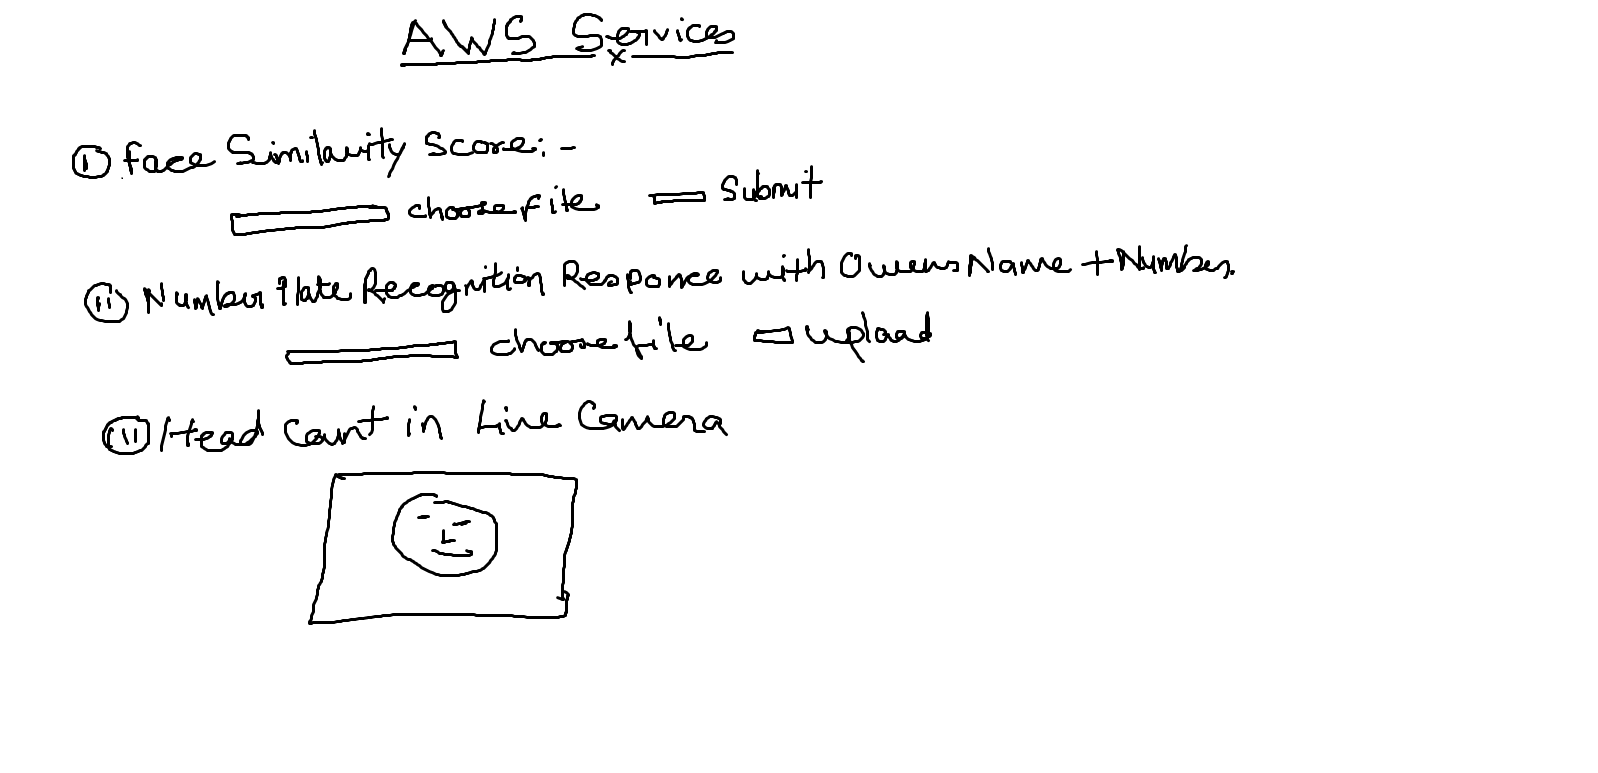 AWS Services
(i) Face Similarity Score:-
choose file Submit
(ii) Number Plate Recognition Responce with Owens Name + Number.
choose file upload
(iii) Head Count in Live Camera